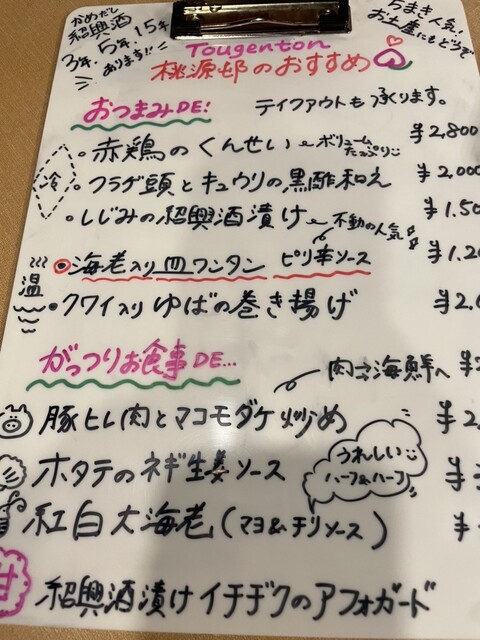 かめだし
紹興酒
3年、5年、15年
あります!!
ちまき人気!
お土産にもどうぞ
Tougenton
桃源邨のおすすめ
おつまみDE!
テイクアウトも承ります。
冷
・赤鶏のくんせい ボリュームたっぷり ¥2,800
・クラゲ頭とキュウリの黒酢和え ¥2,000
・しじみの紹興酒漬け 不動の人気 ¥1,50
温
海老入り皿ワンタン ピリ辛ソース ¥1,20
・クワイ入りゆばの巻き揚げ ¥2,
がっつりお食事DE...
肉→海鮮へ ¥
豚ヒレ肉とマコモダケ炒め ¥2,
ホタテのネギ生姜ソース ¥
うれしい
ハーフ&ハーフ
紅白大海老(マヨ&チリソース) ¥
甘
紹興酒漬けイチヂクのアフォガード